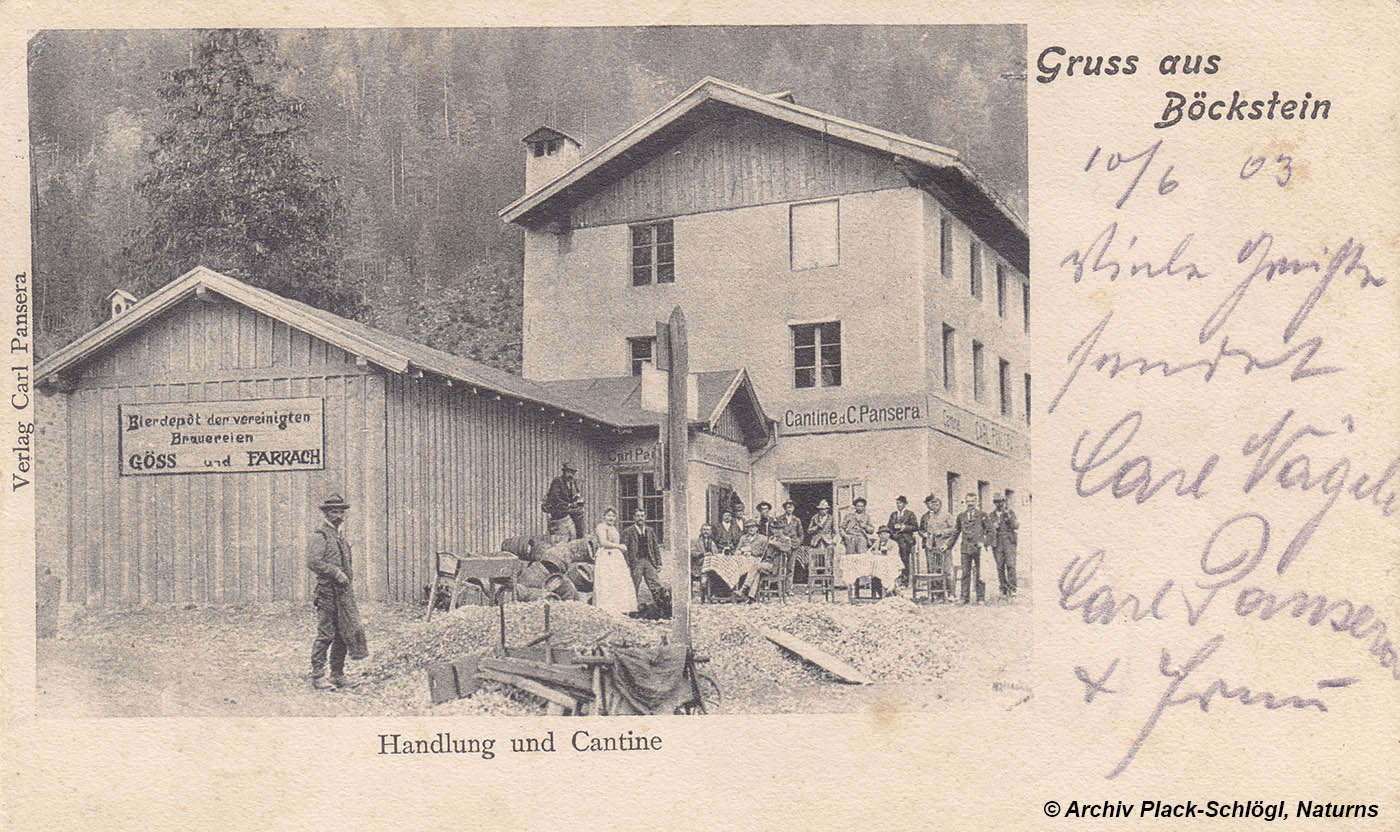 Gruss aus
Böckstein
10/6 03
Viele Grüsse
sendet
Carl Nägele
Carl Pansera
+ Frau
Verlag Carl Pansera
Bierdepôt der vereinigten
Brauereien
GÖSS und FARRACH
Cantine d. C. Pansera
Cantine
Carl Pa
Handlung und Cantine
© Archiv Plack-Schlögl, Naturns